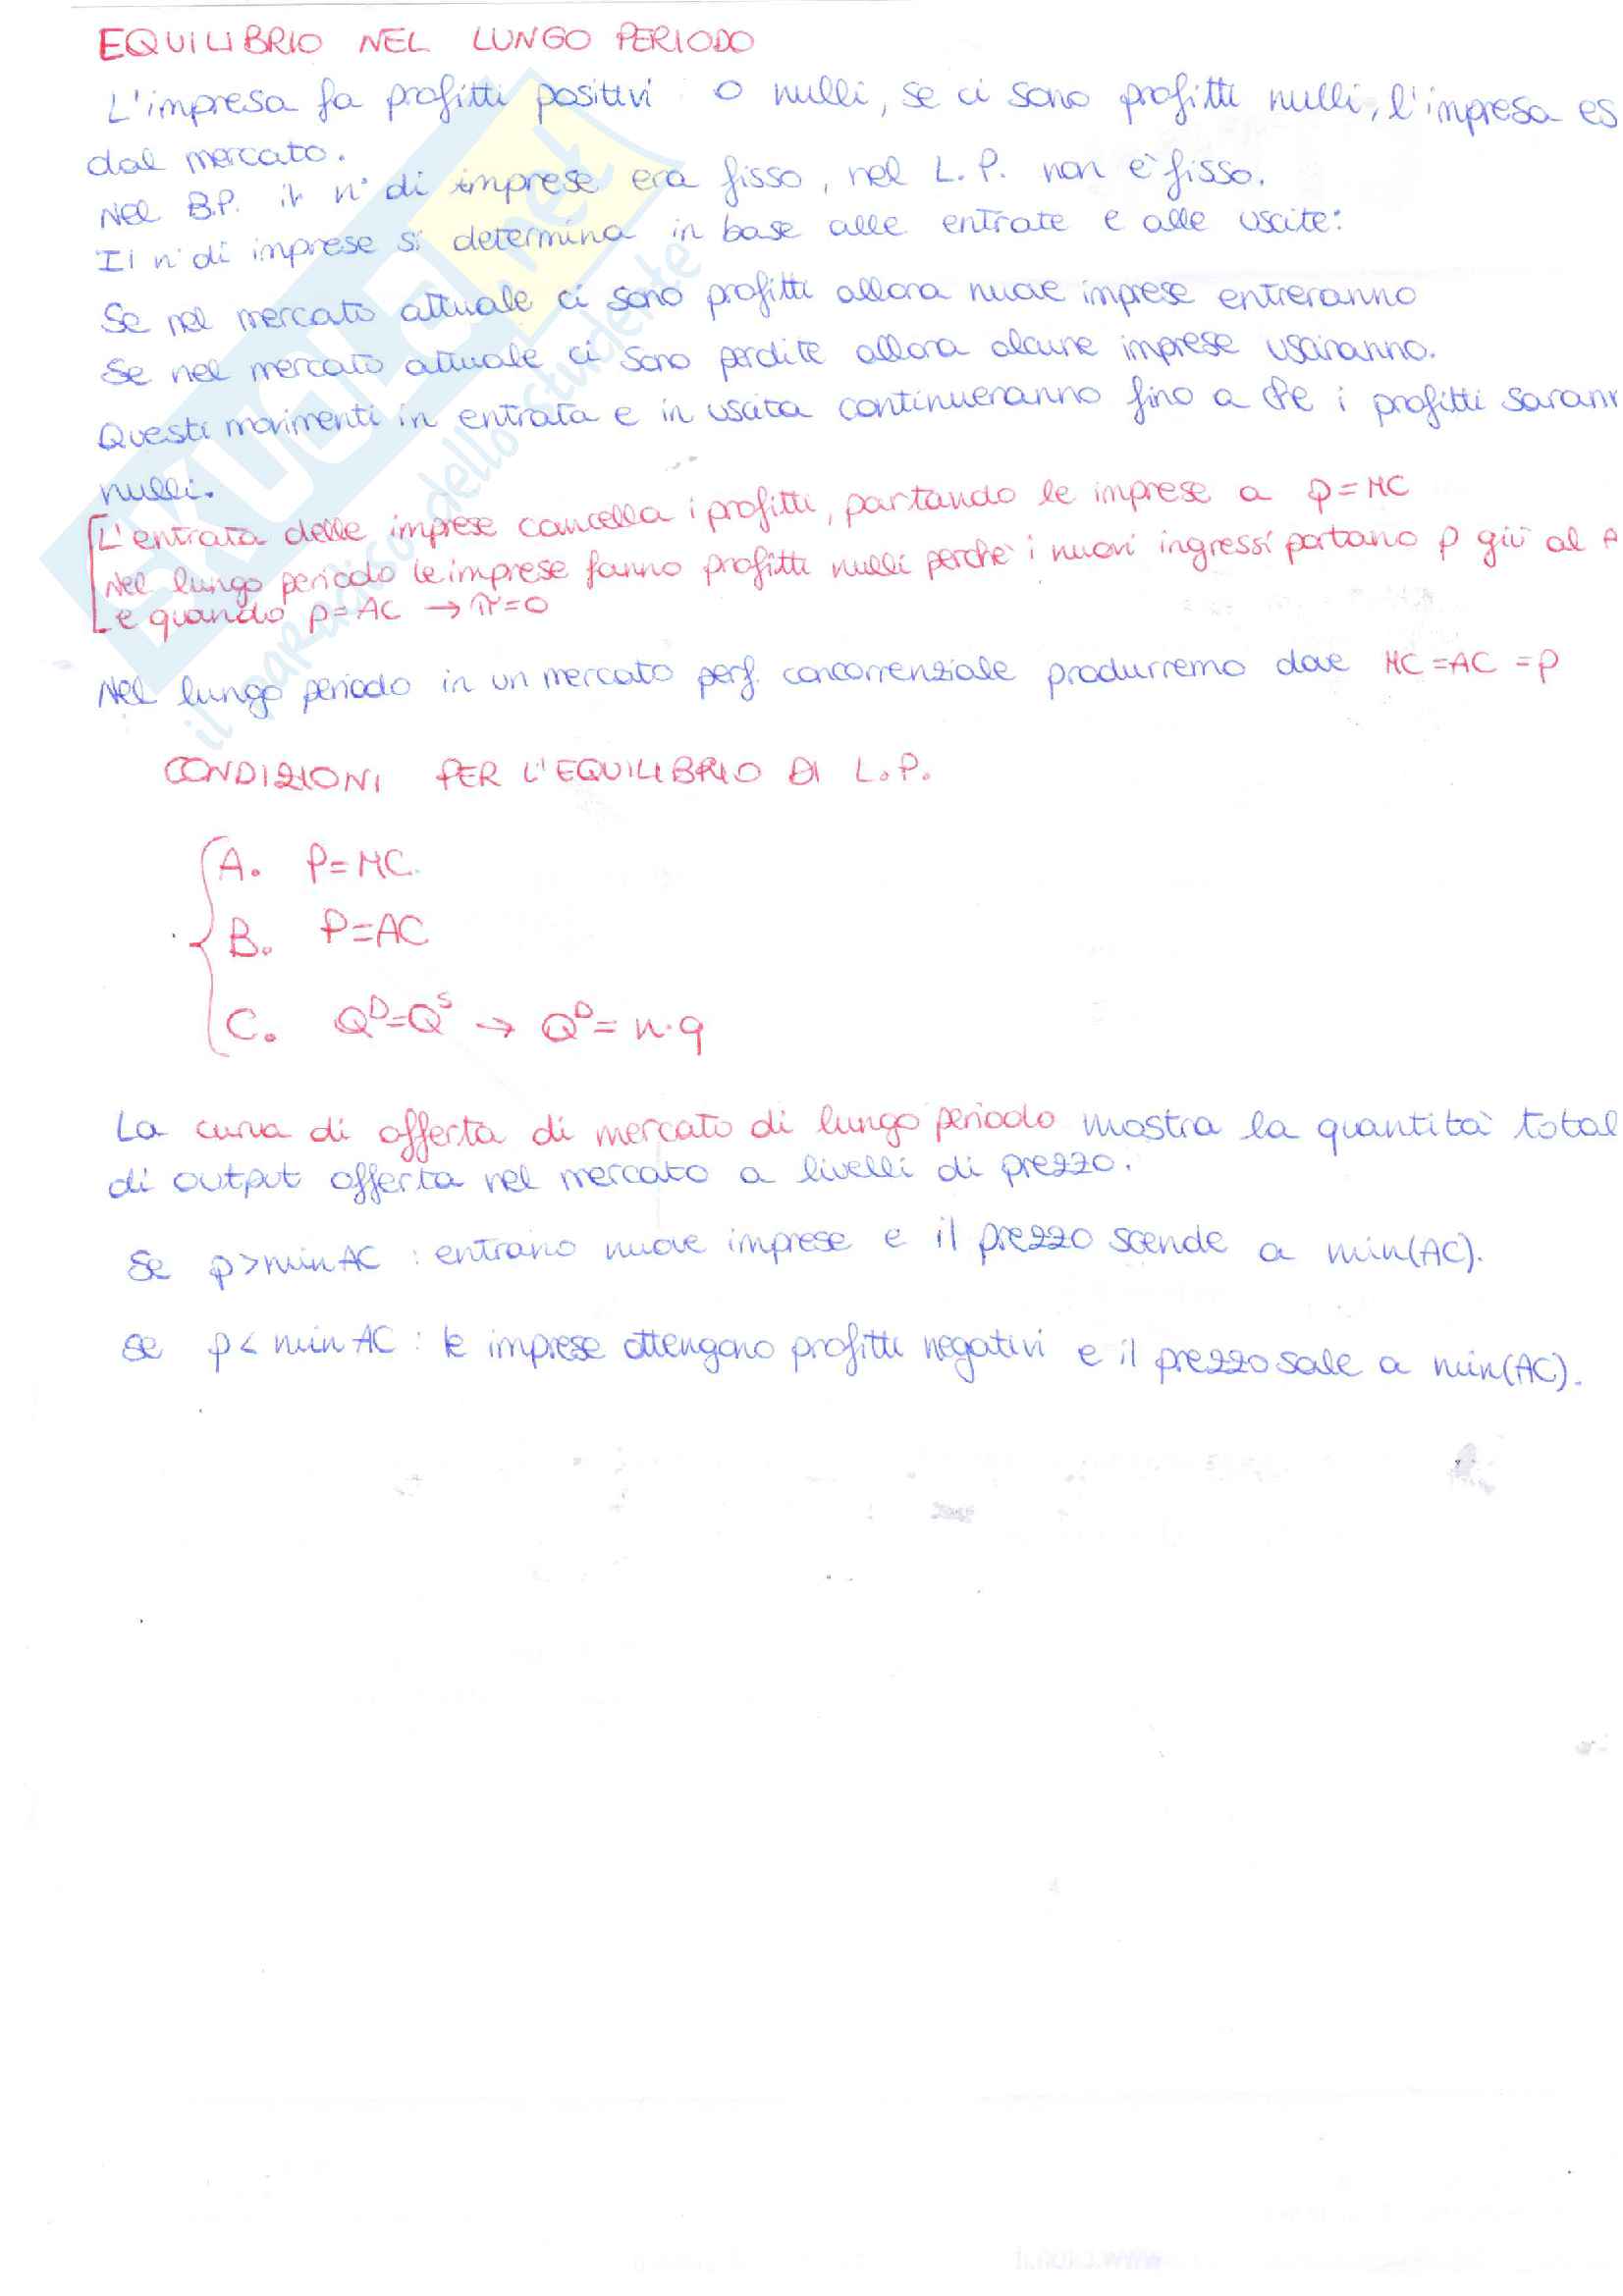 EQUILIBRIO NEL LUNGO PERIODO
L'impresa fa profitti positivi o nulli, se ci sono profitti nulli, l'impresa es
dal mercato.
Nel B.P. il n° di imprese era fisso, nel L.P. non è fisso.
Il n° di imprese si determina in base alle entrate e alle uscite:
Se nel mercato attuale ci sono profitti allora nuove imprese entreranno
Se nel mercato attuale ci sono perdite allora alcune imprese usciranno.
Questi movimenti in entrata e in uscita continueranno fino a che i profitti sarann
nulli.
L'entrata delle imprese cancella i profitti, portando le imprese a p=MC
Nel lungo periodo le imprese fanno profitti nulli perchè i nuovi ingressi portano p giù al A
e quando p=AC → π=0
Nel lungo periodo in un mercato perf. concorrenziale produrremo dove MC=AC=p
CONDIZIONI PER L'EQUILIBRIO DI L.P.
A. P=MC
B. P=AC
C. Q^D=Q^S → Q^D=n·q
La curva di offerta di mercato di lungo periodo mostra la quantità total
di output offerta nel mercato a livelli di prezzo.
Se p>min AC : entrano nuove imprese e il prezzo scende a min(AC).
se p<min AC : le imprese ottengono profitti negativi e il prezzo sale a min(AC).
SKUOLA.net
il paradiso dello studente